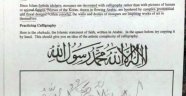 Since Islam forbids mosques are decorated with calligraphy rather than with pictures of human
or animal figures. Verses of the Koran, drawn in flowing Arabic, are bordered by complex geometrical
and floral designs. Often colorful, the walls and domes of mosques are inspiring works of art in
themselves.
Practicing Calligraphy
Here is the shahada, the Islamic statement of faith, written in Arabic. In the space below, try copying it
by hand. This should give you an idea of the artistic complexity of calligraphy.
لا إله إلا الله محمد رسول الله